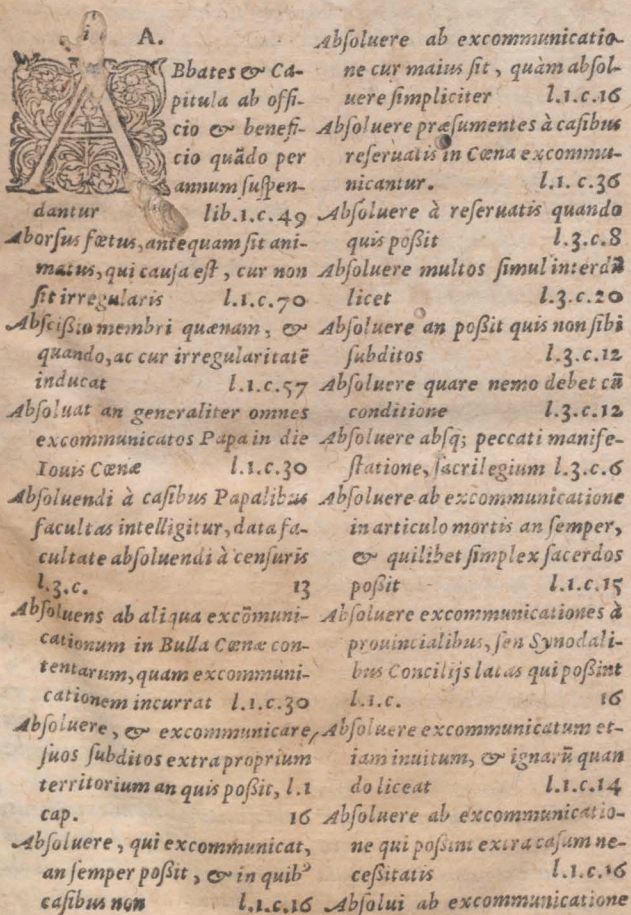 A.
ABbates & Ca-
pitula ab offi-
cio & benefi-
cio quãdo per
annum ſuſpen-
dantur lib.1.c.49
Aborſus fœtus, antequam ſit ani-
matus, qui cauſa eſt, cur non
ſit irregularis l.1.c.70
Abſciſſio membri quænam, &
quando, ac cur irregularitatē
inducat l.1.c.57
Abſoluat an generaliter omnes
excommunicatos Papa in die
Iouis Cœnæ l.1.c.30
Abſoluendi à caſibus Papalibus
facultas intelligitur, data fa-
cultate abſoluendi à cenſuris
l.3.c. 13
Abſoluens ab aliqua excõmuni-
cationum in Bulla Cœnæ con-
tentarum, quam excommuni-
cationem incurrat l.1.c.30
Abſoluere, & excommunicare,
ſuos ſubditos extra proprium
territorium an quis poßit, l.1
cap. 16
Abſoluere, qui excommunicat,
an ſemper poßit, & in quibꝰ
caſibus non l.1.c.16
Abſoluere ab excommunicatio-
ne cur maius ſit, quàm abſol-
uere ſimpliciter l.1.c.16
Abſoluere præſumentes à caſibus
reſeruatis in Cœna excommu-
nicantur. l.1.c.36
Abſoluere à reſeruatis quando
quis poßit l.3.c.8
Abſoluere multos ſimul interdũ
licet l.3.c.20
Abſoluere an poßit quis non ſibi
ſubditos l.3.c.12
Abſoluere quare nemo debet cũ
conditione l.3.c.12
Abſoluere abſq; peccati manife-
ſtatione, ſacrilegium l.3.c.6
Abſoluere ab excommunicatione
in articulo mortis an ſemper,
& quilibet ſimplex ſacerdos
poßit l.1.c.15
Abſoluere excommunicationes à
prouincialibus, ſeu Synodali-
bus Concilijs latas qui poßint
l.1.c. 16
Abſoluere excommunicatum et-
iam inuitum, & ignarũ quan
do liceat l.1.c.14
Abſoluere ab excommunicatio-
ne qui poßint extra caſum ne-
ceßitatis l.1.c.16
Abſolui ab excommunicatione